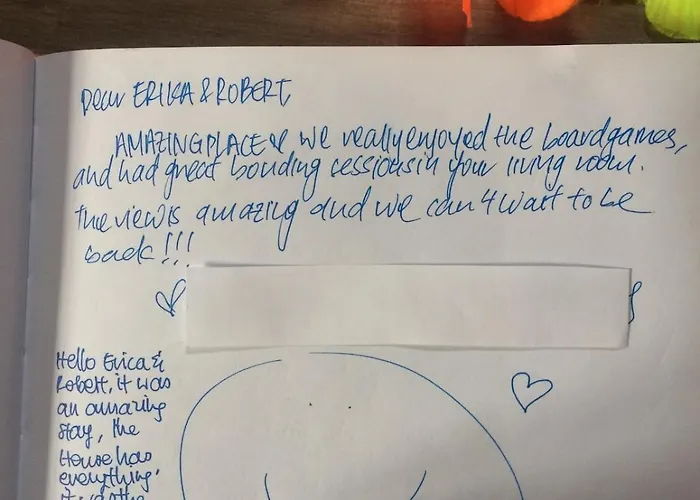 Dear ERIKA & ROBERT,
AMAZING PLACE ♥ We really enjoyed the boardgames,
and had great bonding cessions in your living room.
The view is amazing and we can't wait to be
back!!!
Hello Erica &
Robert, it was
an amazing
stay, the
House has
everything,
it was the